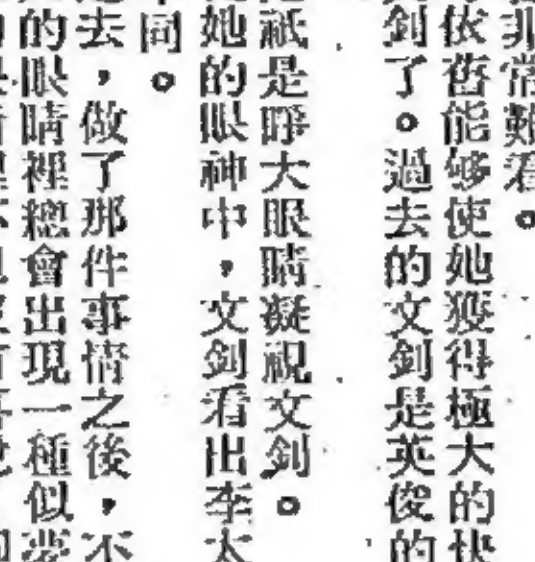 非常難看。
依舊能够使她獲得極大的快
釗了。過去的文釗是英俊的
祇是睜大眼睛凝視文釗。
她的眼神中，文釗看出李太
同。
去，做了那件事情之後，不
的眼睛裡總會出現一種似夢